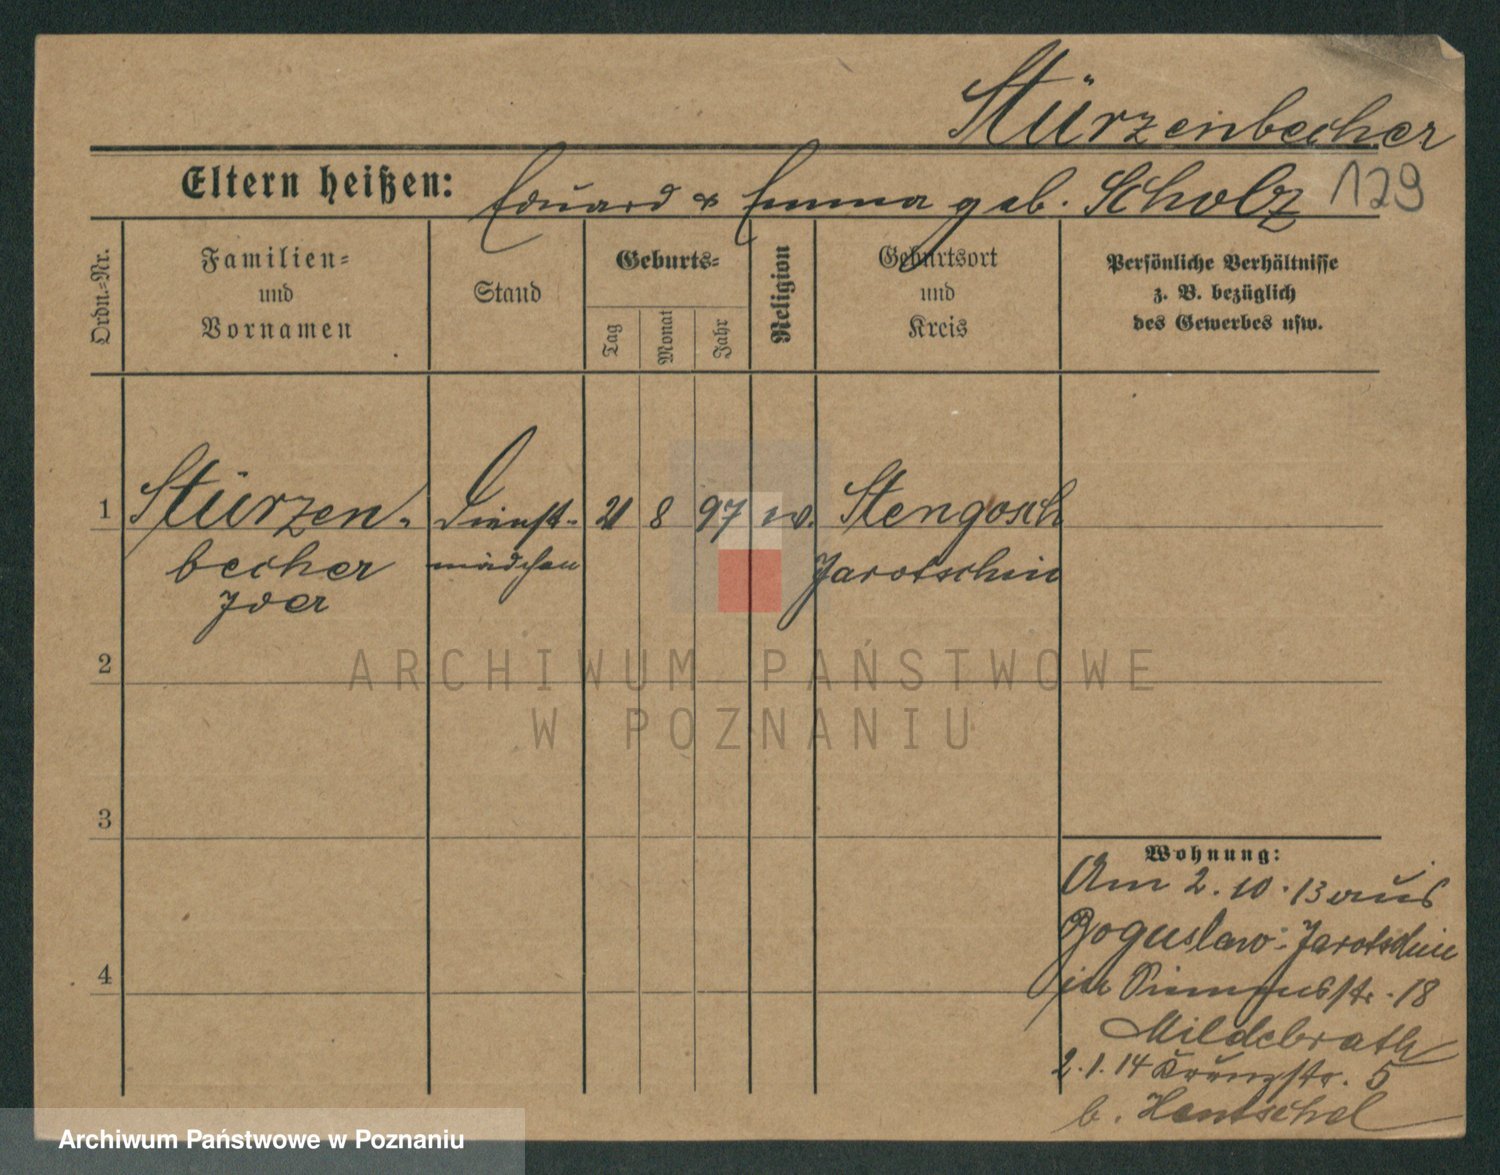 Stürzenbecher
Eltern heißen: Eduard & Emma geb. Scholz 129
Ordn.-Nr.
Familien-
und
Vornamen
Stand
Geburts-
Tag
Monat
Jahr
Religion
Geburtsort
und
Kreis
Persönliche Verhältnisse
z. B. bezüglich
des Gewerbes usw.
1 Stürzen- Dienst- 21 8 97 ev. Stengosch
becher mädchen Jarotschin
2
3
4
ARCHIWUM PAŃSTWOWE
W POZNANIU
Wohnung:
Am 2.10.13 aus
Boguslaw-Jarotschin
in 18
Mildebrath
2.1.14 5
b. Hentschel
Archiwum Państwowe w Poznaniu